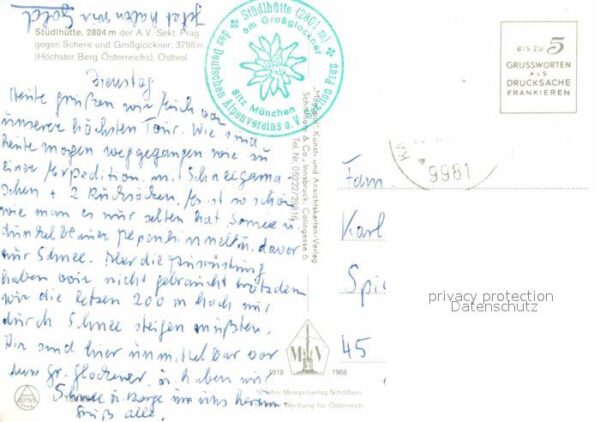 Jetzt haben wir
Geld
Stüdlhütte, 2804 m der A.V. Sekt. Prag
gegen Schere und Großglockner, 3798 m
(Höchster Berg Österreichs), Osttirol
Stüdlhütte (2801 m)
am Großglockner
des Deutschen Alpenvereins e.V. Sektion Prag
Sitz München
BIS ZU 5
GRUSSWORTEN
ALS
DRUCKSACHE
FRANKIEREN
9981
Dienstag
Heute grüßen wir Euch von
unserer höchsten Tour. Wir sind
heute morgen weggegangen wie zu
einer Expedition mit Schneegama
schen + 2 Rucksäcken. Es ist so schön
wie man es nur selten hat Sonne u
dunkelblauer
nur Schnee. Aber die Ausrüstung
haben wir nicht gebraucht trotzdem
wir die letzen 200 m hoch nur
durch Schnee steigen mußten.
Wir sind hier unmittelbar vor
dem Gr. Glockner u haben nur
Schnee u. Berge um uns herum.
Gruß alle.
Kunst- und Ansichtskarten-Verlag
Schöllhorn & Co., Innsbruck, Colingasse 6
Tel. Nr. 05222/
Fam.
Karl
Spi
45
privacy protection
Datenschutz
M V
1918 1968
50 Jahre Monopolverlag Schöllhorn
Werbung für Österreich